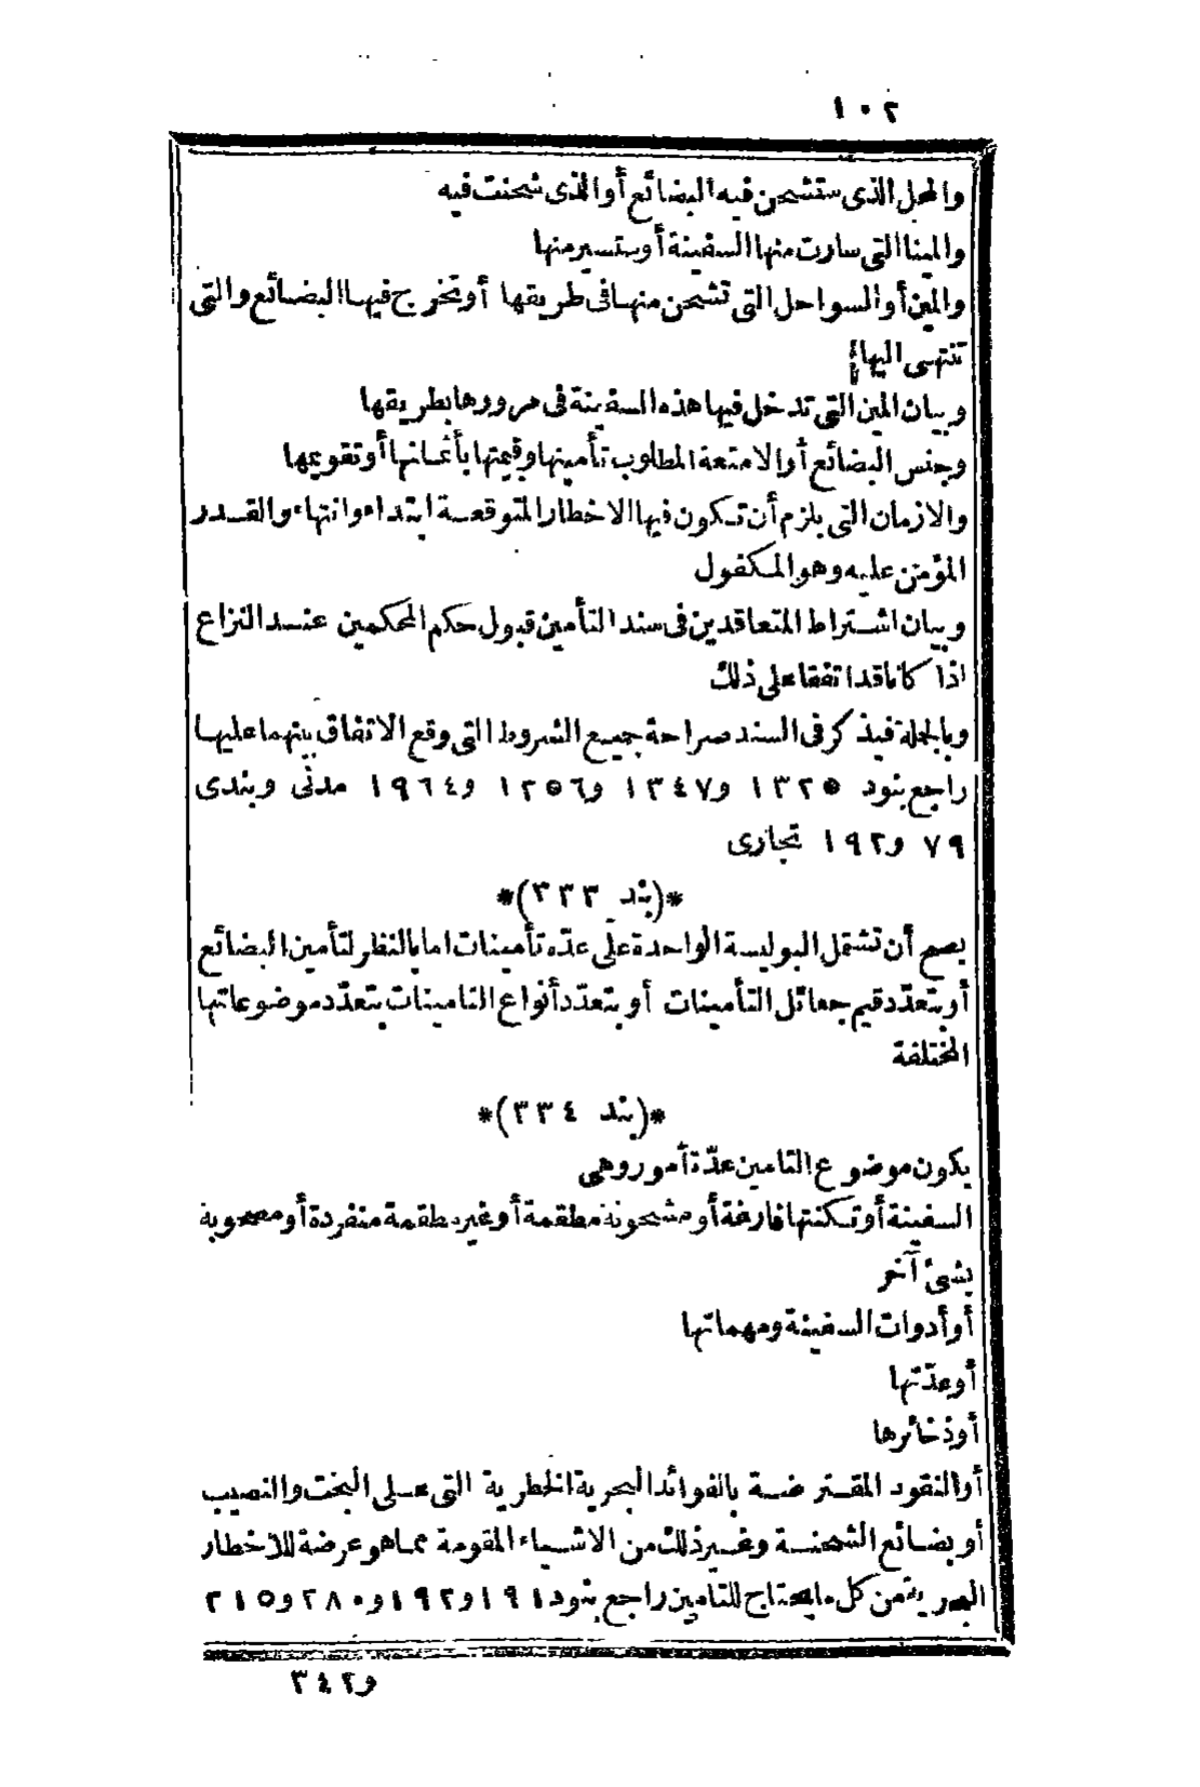 ١٠٢
والمحل الذى ستشحن فيه البضائع أو الذى شحنت فيه
والمينا التى سارت منها السفينة أو ستسير منها
والمين أو السواحل التى تشحن منها فى طريقها أو تخرج فيها البضائع والتى
تنتهى اليها
وبيان المين التى تدخل فيها هذه السفينة فى مرورها بطريقها
وجنس البضائع أو الامتعة المطلوب تأمينها وقيمتها بأثمانها أو تقويمها
والازمان التى يلزم أن تكون فيها الاخطار المتوقعة ابتداء وانتهاء والقدر
المؤمن عليه وهو المكفول
وبيان اشتراط المتعاقدين فى سند التأمين قبول حكم المحكمين عند النزاع
اذا كانا قد اتفقا على ذلك
وبالجملة فيذكر فى السند صراحة جميع الشروط التى وقع الاتفاق بينهما عليها
راجع بنود ١٣٢٥ و١٣٤٧ و١٢٥٦ و١٩٦٤ مدنى وبندى
٧٩ و١٩٢ تجارى
*(بند ٣٣٣)*
يصح أن تشتمل البوليسة الواحدة على عدّه تأمينات اما بالنظر لتأمين البضائع
أو بتعدّد قيم جعائل التأمينات أو بتعدّد أنواع التامينات بتعدّد موضوعاتها
المختلفة
*(بند ٣٣٤)*
يكون موضوع التامين عدّة أمور وهى
السفينة أو تكنتها فارغة أو مشحونة مطقمة أو غير مطقمة منفردة أو مصحوبة
بشئ آخر
أو أدوات السفينة ومهماتها
أو عدّتها
أو ذخائرها
أو النقود المقترضة بالفوائد البحرية الخطرية التى على البخت والنصيب
أو بضائع الشحنة وغير ذلك من الاشياء المقومة مما هو عرضة للاخطار
البحرية من كل ما يحتاج للتامين راجع بنود ١٩١ و١٩٢ و٢٨٠ و٣١٥
و٣٤٢